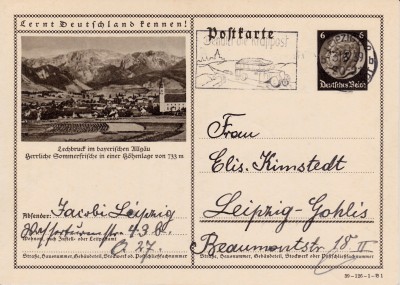 Lernt Deutschland kennen!
Lechbruck im bayerischen Allgäu
Herrliche Sommerfrische in einer Höhenlage von 733 m
Absender: Jacobi Leipzig
43
O. 27.
Wohnort, auch Zustell- oder Leitpostamt
Straße, Hausnummer, Gebäudeteil, Stockwerk od. Postschließfachnummer
Postkarte
Benutzt die Kraftpost
6 6
Deutsches Reich
Frau
Elis. Kimstedt
Leipzig-Gohlis
Beaumontstr. 18 II
Straße, Hausnummer, Gebäudeteil, Stockwerk oder Postschließfachnummer